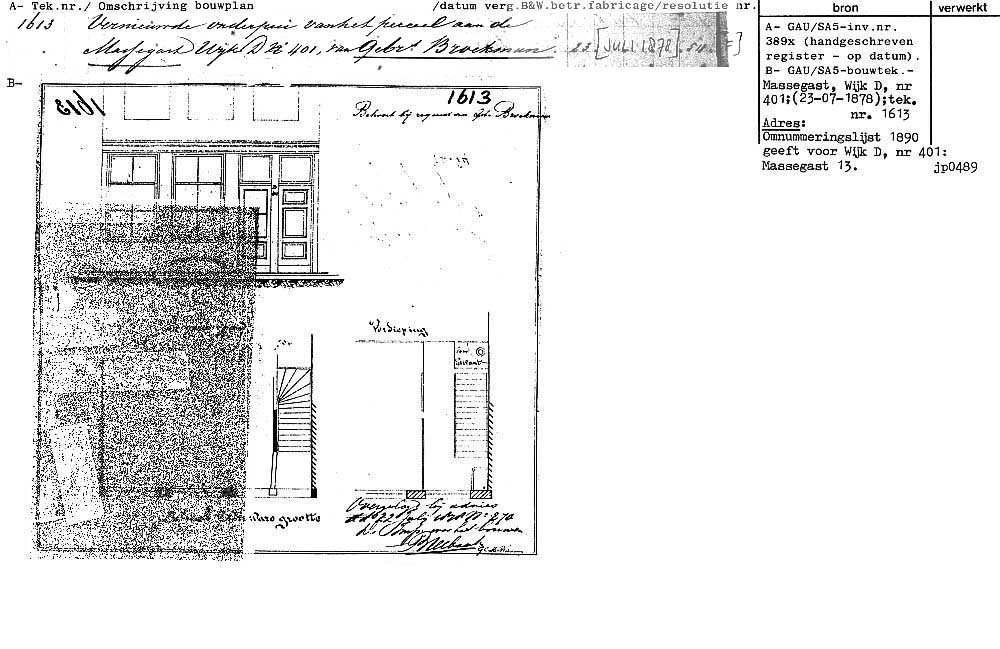 A- Tek.nr./ Omschrijving bouwplan /datum verg.B&W.betr.fabricage/resolutie nr.
1613 Vernieuwde onderpui van het perceel aan de
Massegast Wijk D No 401, van Gebrs. Broekman. 23 [JULI 1878]
B-
1613
1613
Behoort bij request van Gebr. Broekman
Verdieping
Ware grootte
Overgelegd bij advies
bron
verwerkt
A- GAU/SA5-inv.nr.
389x (handgeschreven
register - op datum).
B- GAU/SA5-bouwtek.-
Massegast, Wijk D, nr
401;(23-07-1878);tek.
nr. 1613
Adres:
Omnummeringslijst 1890
geeft voor Wijk D, nr 401:
Massegast 13. jp0489